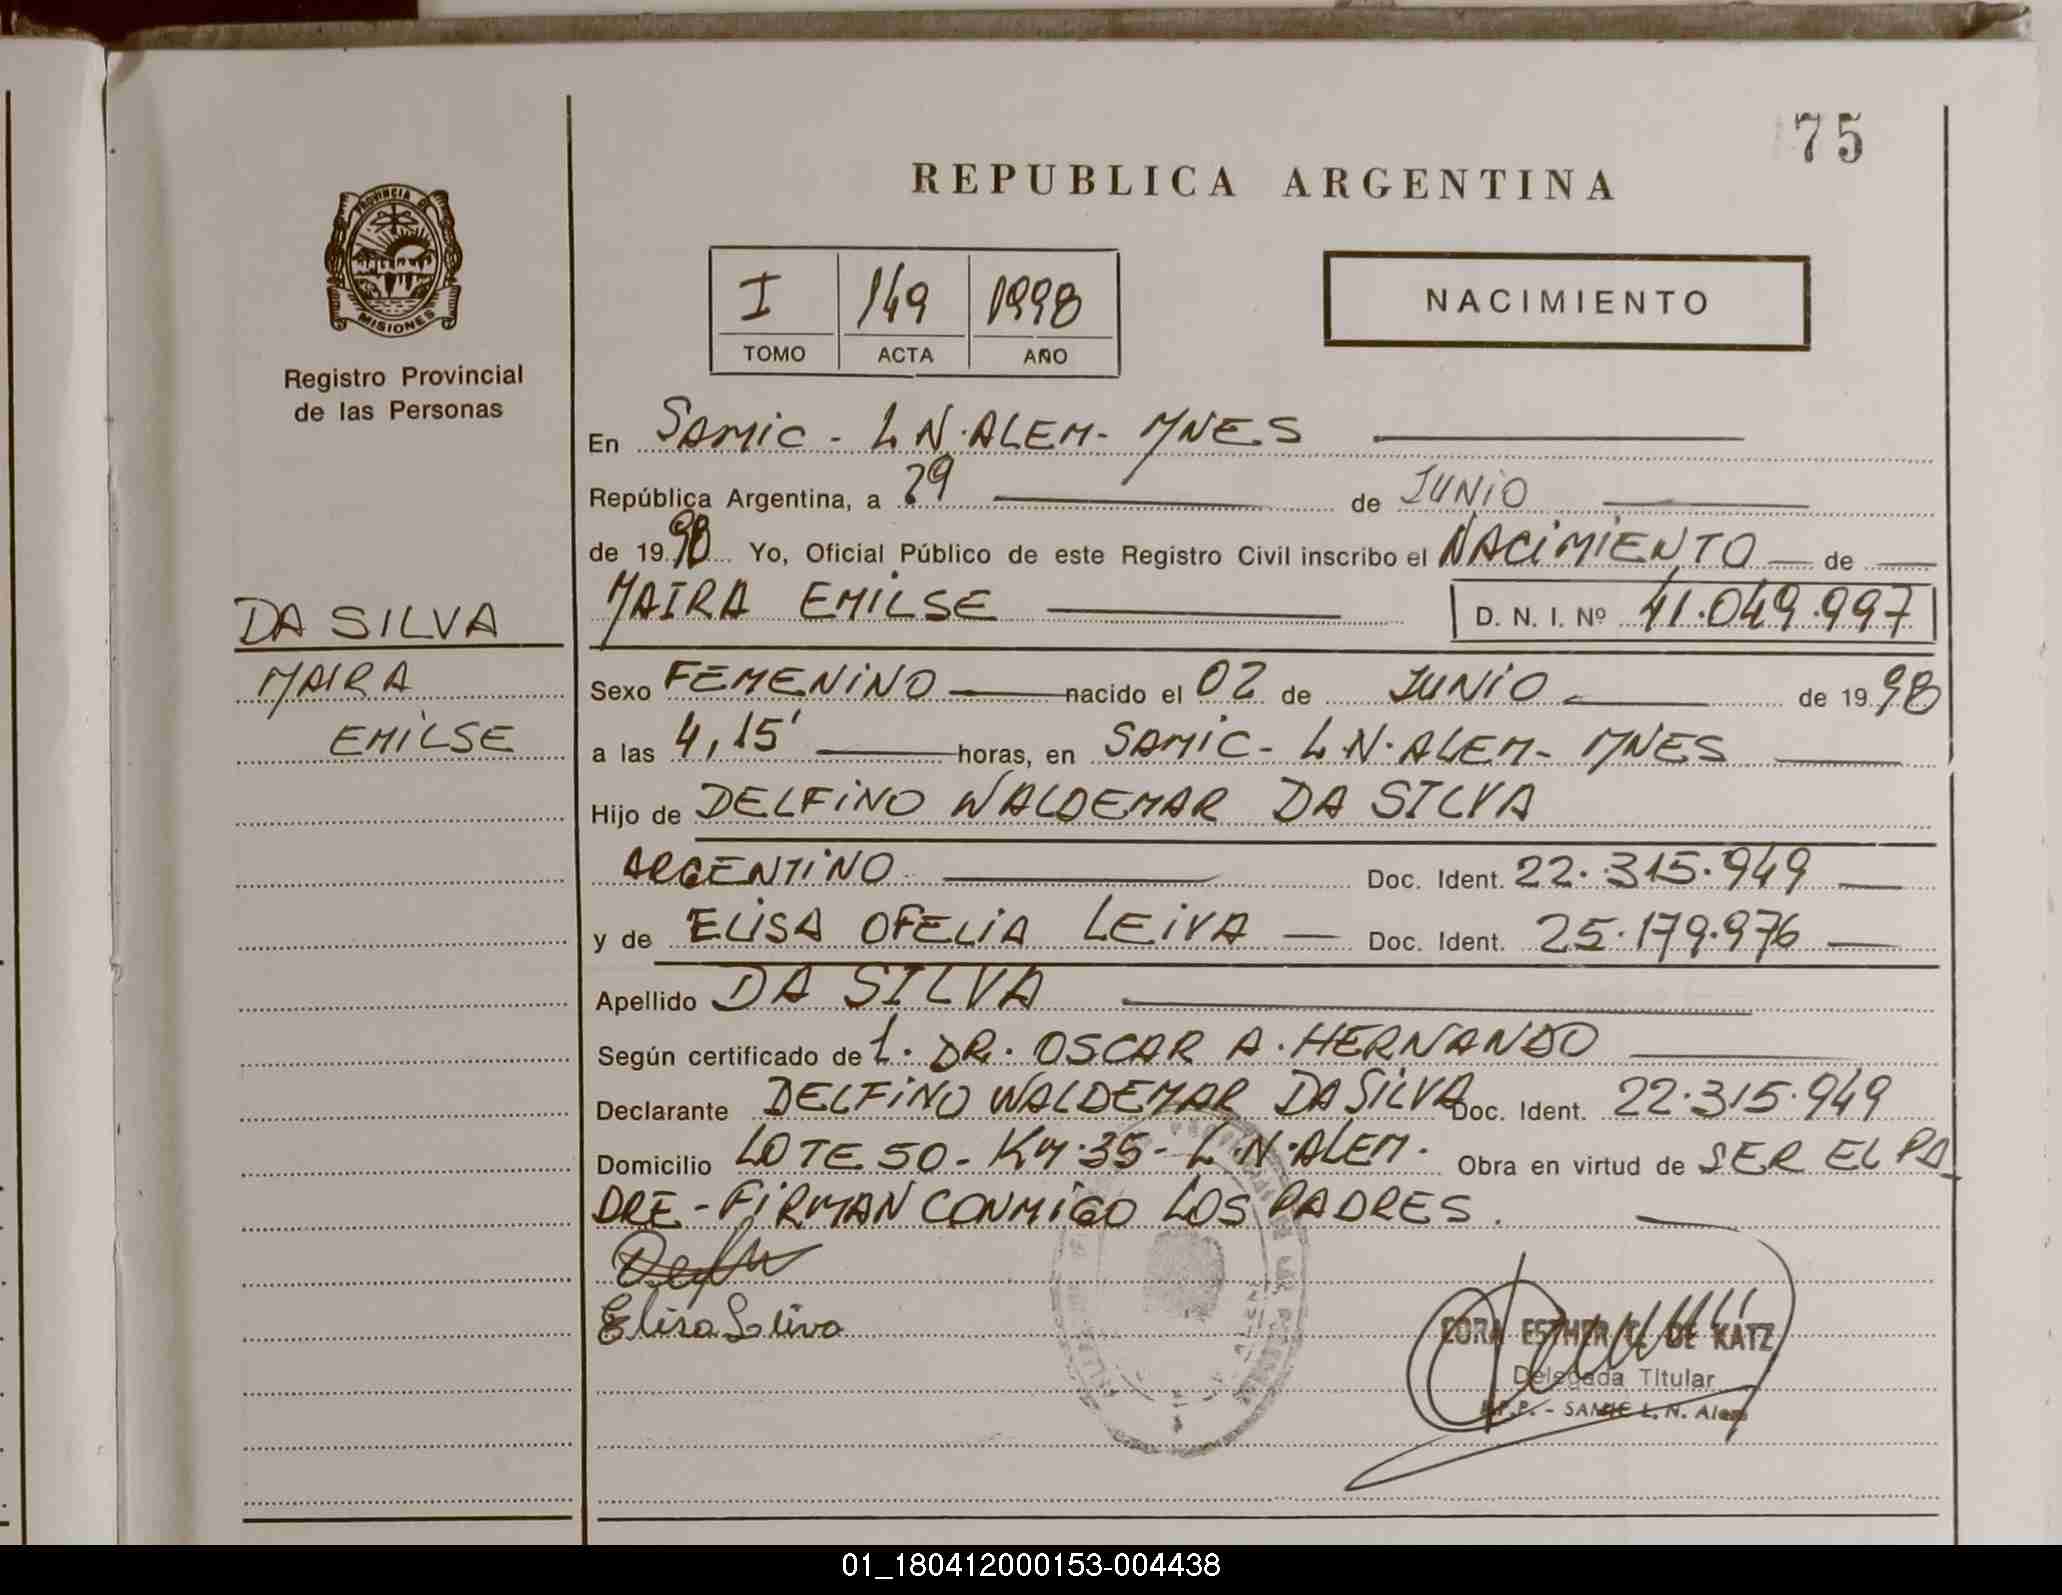 75
REPUBLICA ARGENTINA
PROVINCIA DE
MISIONES
Registro Provincial
de las Personas
I 149 1998
TOMO ACTA AÑO
NACIMIENTO
En SAMIC - L N. ALEM - MNES
República Argentina, a 29 de JUNIO
de 1998 Yo, Oficial Público de este Registro Civil inscribo el NACIMIENTO de
MAIRA EMILSE D. N. I. Nº 41.049.997
DA SILVA
MAIRA
EMILSE
Sexo FEMENINO nacido el 02 de JUNIO de 1998
a las 4,15' horas, en SAMIC - L.N. ALEM - MNES
Hijo de DELFINO WALDEMAR DA SILVA
ARGENTINO Doc. Ident. 22.315.949
y de ELISA OFELIA LEIVA Doc. Ident. 25.179.976
Apellido DA SILVA
Según certificado de L. DR. OSCAR A. HERNANDO
Declarante DELFINO WALDEMAR DA SILVA Doc. Ident. 22.315.949
Domicilio LOTE 50 - KM. 35 - L.N. ALEM. Obra en virtud de SER EL PA_
DRE - FIRMAN CONMIGO LOS PADRES.
Elisa Leiva
ESTHER C. DE KATZ
Delegada Titular
R.P.P. - SAMIC L. N. Alem
01_180412000153-004438